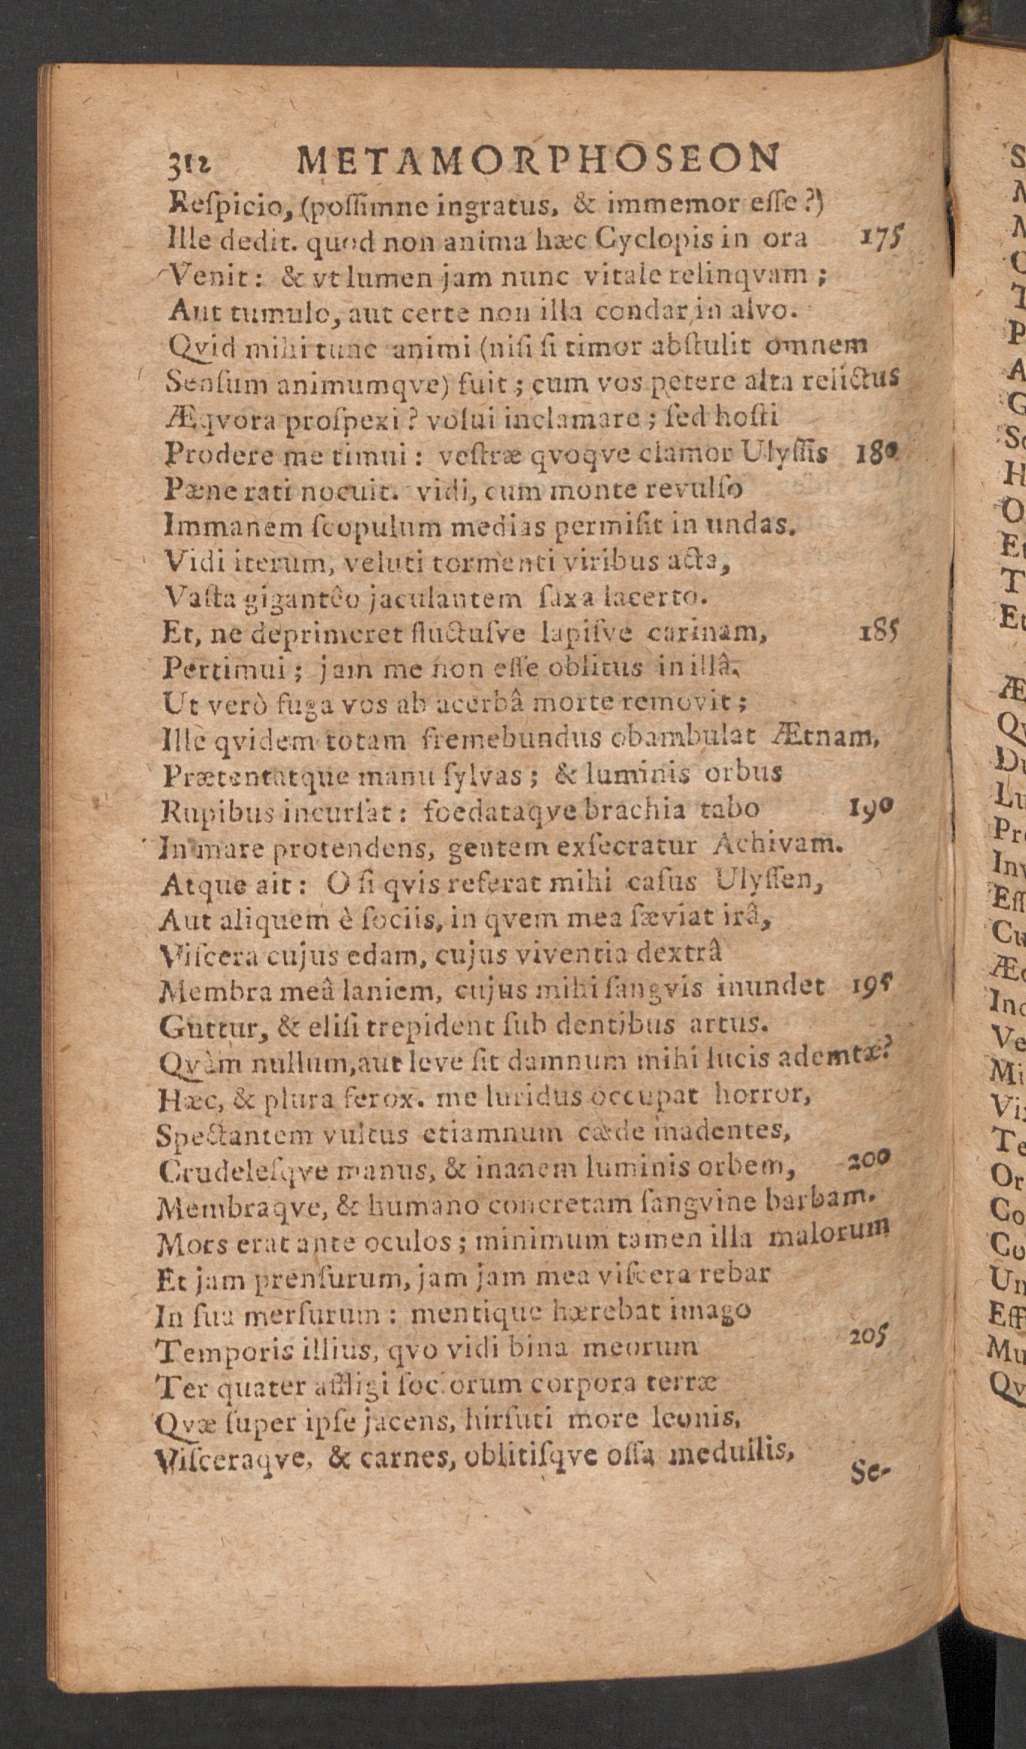 312 METAMORPHOSEON
Reſpicio, (poſſimne ingratus, & immemor eſſe?)
Ille dedit. quod non anima hæc Cyclopis in ora 175
Venit: & vt lumen jam nunc vitale relinqvam;
Aut tumulo, aut certe non illa condar in alvo.
Qvid mihi tunc animi (niſi ſi timor abſtulit omnem
Senſum animumqve) fuit; cum vos petere alta relictus
Æqvora proſpexi? volui inclamare; ſed hoſti
Prodere me timui: veſtræ qvoqve clamor Ulyſſis 180
Pæne rati nocuit. vidi, cum monte revulſo
Immanem ſcopulum medias permiſit in undas.
Vidi iterum, veluti tormenti viribus acta,
Vaſta gigantêo jaculantem ſaxa lacerto.
Et, ne deprimeret fluctuſve lapiſve carinam, 185
Pertimui; jam me non eſſe oblitus in illâ.
Ut verò fuga vos ab acerbâ morte removit;
Ille qvidem totam fremebundus obambulat Ætnam,
Prætentatque manu ſylvas; & luminis orbus
Rupibus incurſat: foedataqve brachia tabo 190
In mare protendens, gentem exſecratur Achivam.
Atque ait: O ſi qvis referat mihi caſus Ulyſſen,
Aut aliquem è ſociis, in qvem mea ſæviat irâ,
Viſcera cujus edam, cujus viventia dextrâ
Membra meâ laniem, cujus mihi ſangvis inundet 195
Guttur, & eliſi trepident ſub dentibus artus.
Qvàm nullum, aut leve ſit damnum mihi lucis ademtæ?
Hæc, & plura ferox. me luridus occupat horror,
Spectantem vultus etiamnum cæde madentes,
Crudeleſqve manus, & inanem luminis orbem, 200
Membraqve, & humano concretam ſangvine barbam.
Mors erat ante oculos; minimum tamen illa malorum
Et jam prenſurum, jam jam mea viſcera rebar
In ſua merſurum: mentique hærebat imago
Temporis illius, qvo vidi bina meorum 205
Ter quater affligi ſociorum corpora terræ
Qvæ ſuper ipſe jacens, hirſuti more leonis,
Viſceraqve, & carnes, oblitiſqve oſſa medullis,
Se-